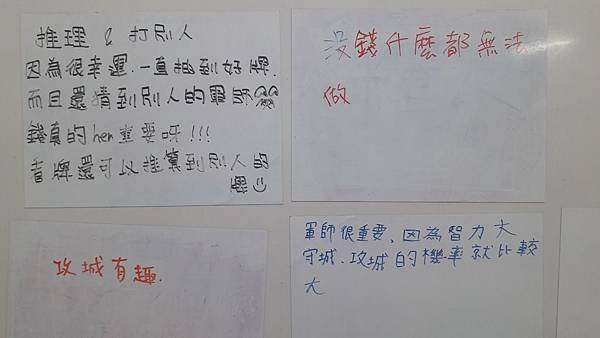 推理 & 打別人
因為很幸運.一直抽到好牌.
而且還猜到別人的軍師
錢真的hen重要呀!!!
看牌還可以推算到別人的
牌
沒錢什麼都無法
做
攻城有趣.
軍師很重要,因為智力大
守城.攻城的機率就比較
大